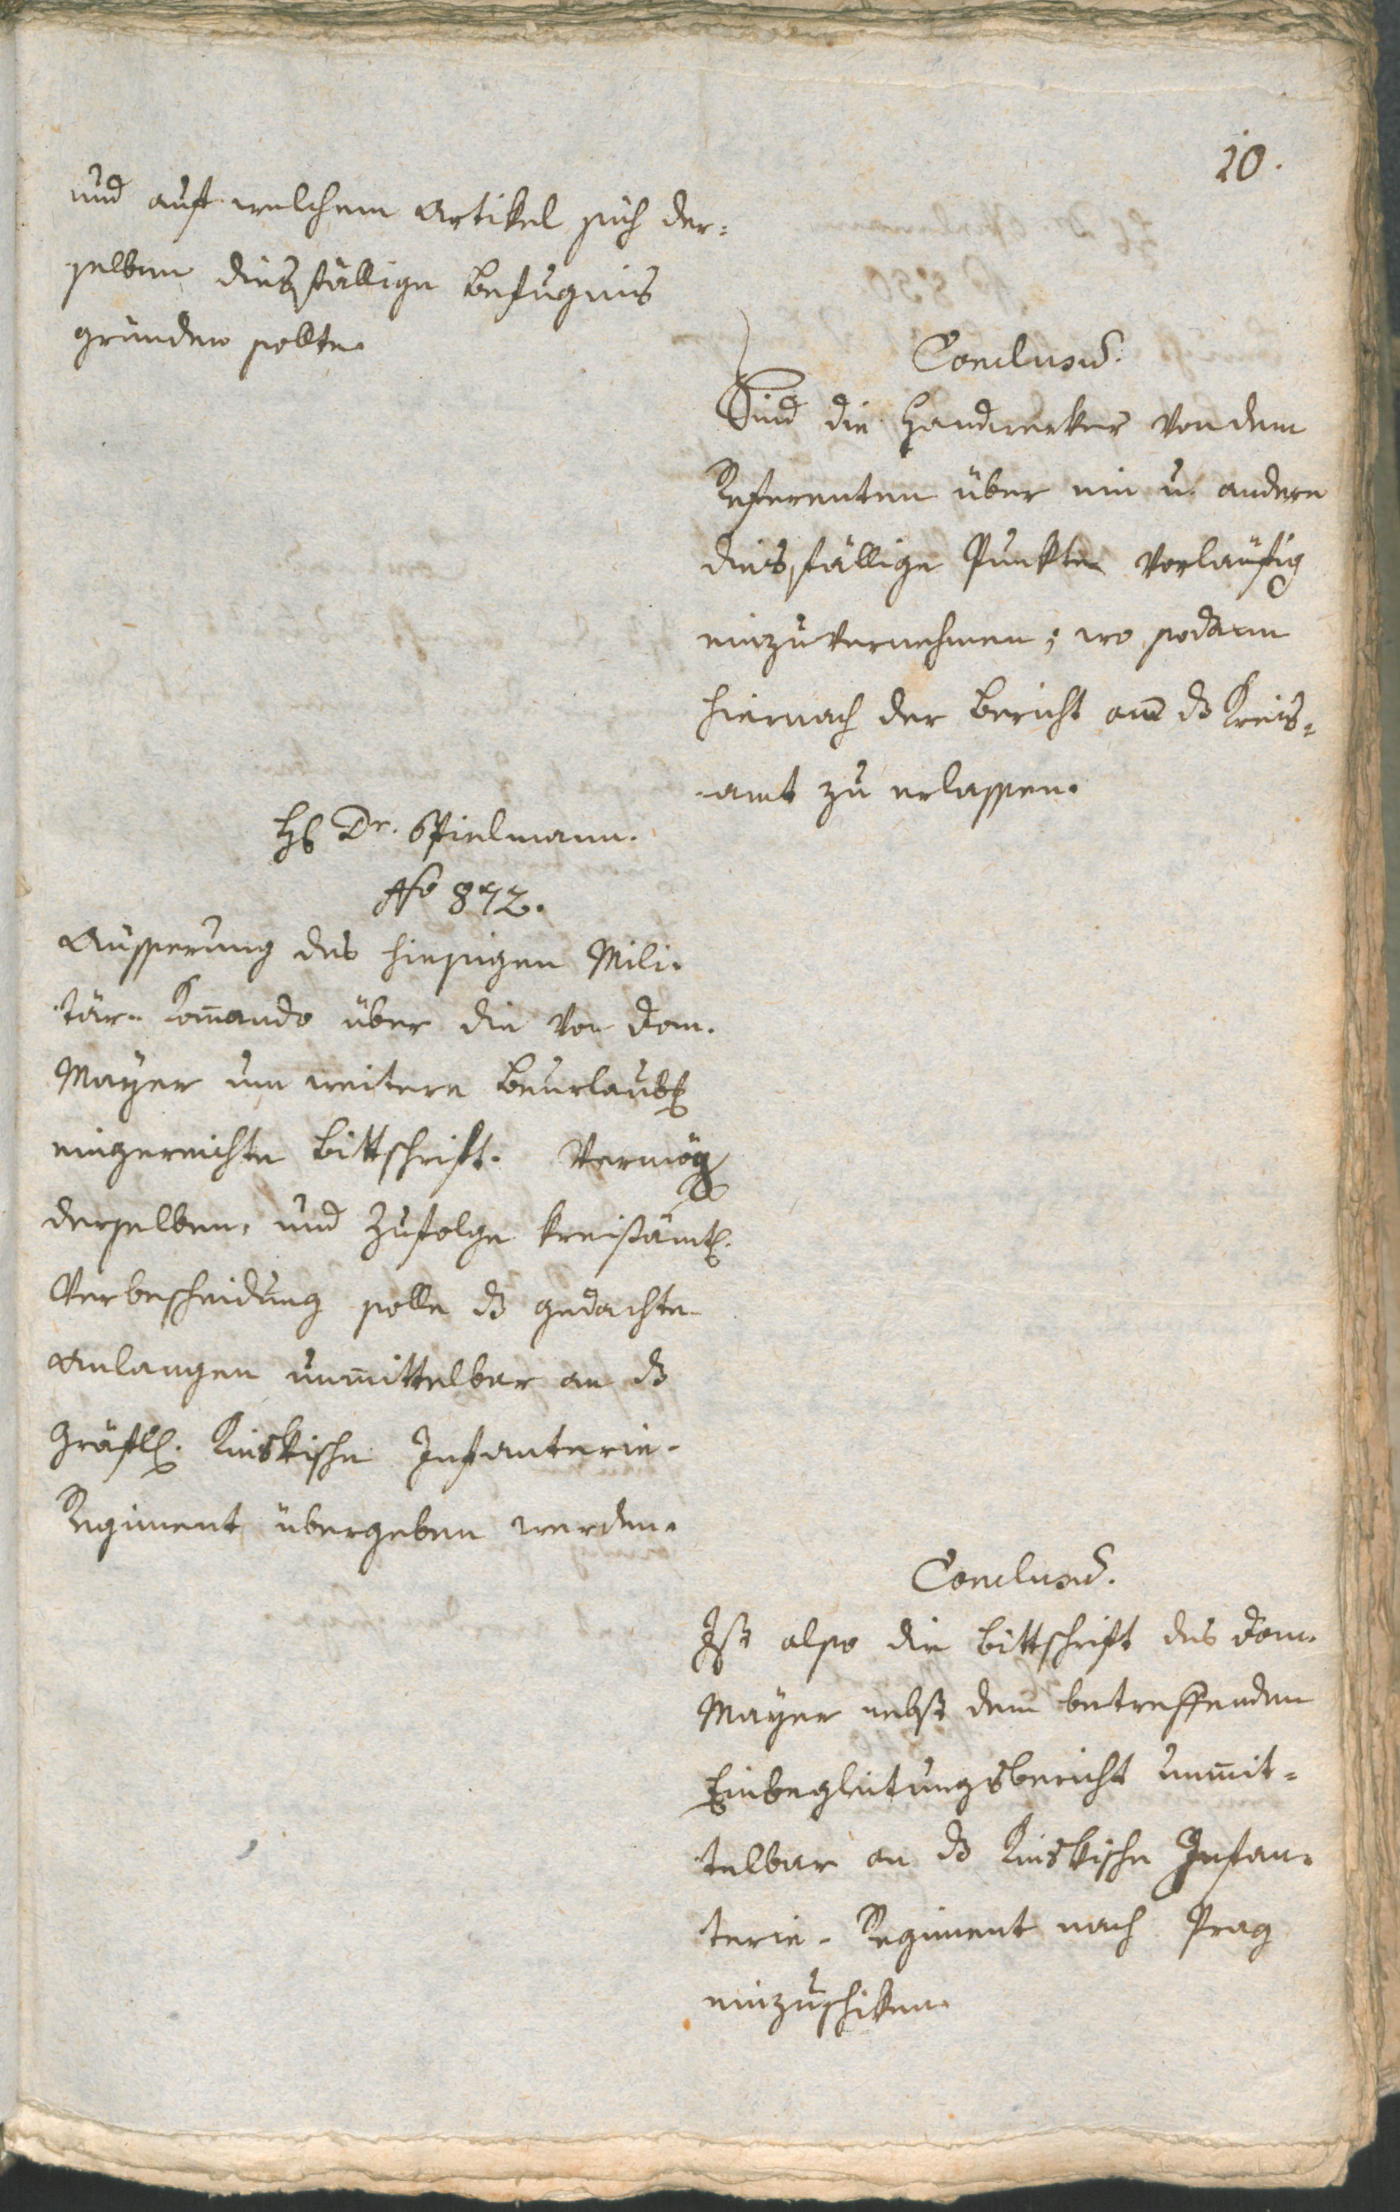 20.
und auf welchem Artikel sich der=
selben diesfällige Befugnis
gründen sollte.
Conclusũ.
Sind die Handwerker von dem
Referenten über ein u. andere
diesfällige Punkte vorläufig
einzuvernehmen; wo sodann
hiernach der Bericht ans Kreis=
amt zu erlassen.
H Dr. Spielmann.
No 872.
Äusserung des hiesigen Mili=
tär-Com̃ando über die von Dom.
Mayer um weitere Beurlaubg
eingereichte Bittschrift. Vermög
derselben, und zufolge kreisämtl.
Verbescheidung solle ds gedachte
Anlangen unm̃ittelbar an ds
gräfl. Kinskische Infanterie-
Regiment übergeben werden.
Conclusũ.
Ist also die Bittschrift des Dom.
Mayer nebst dem betreffenden
Einbegleitungsbericht unm̃it=
telbar an ds Kinskische Infan=
terie-Regiment nach Prag
einzuschiken.